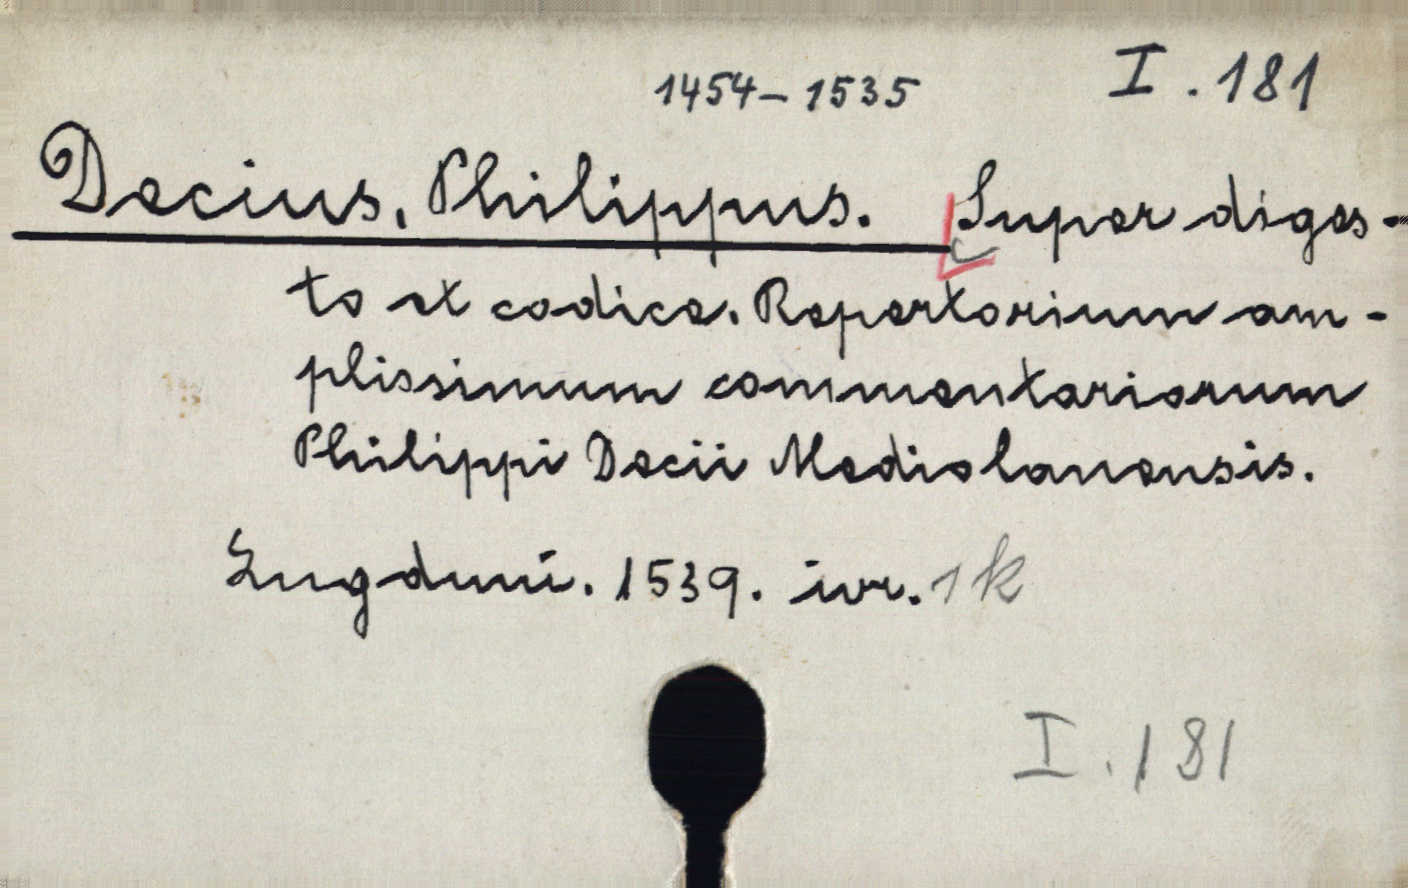 1454-1535 I. 181
Decius, Philippus. Super diges-
to et codice. Repertorium am-
plissimum commentariorum
Philippi Decii Mediolanensis.
Lugduni. 1539. ivr. 1 k
I. 181